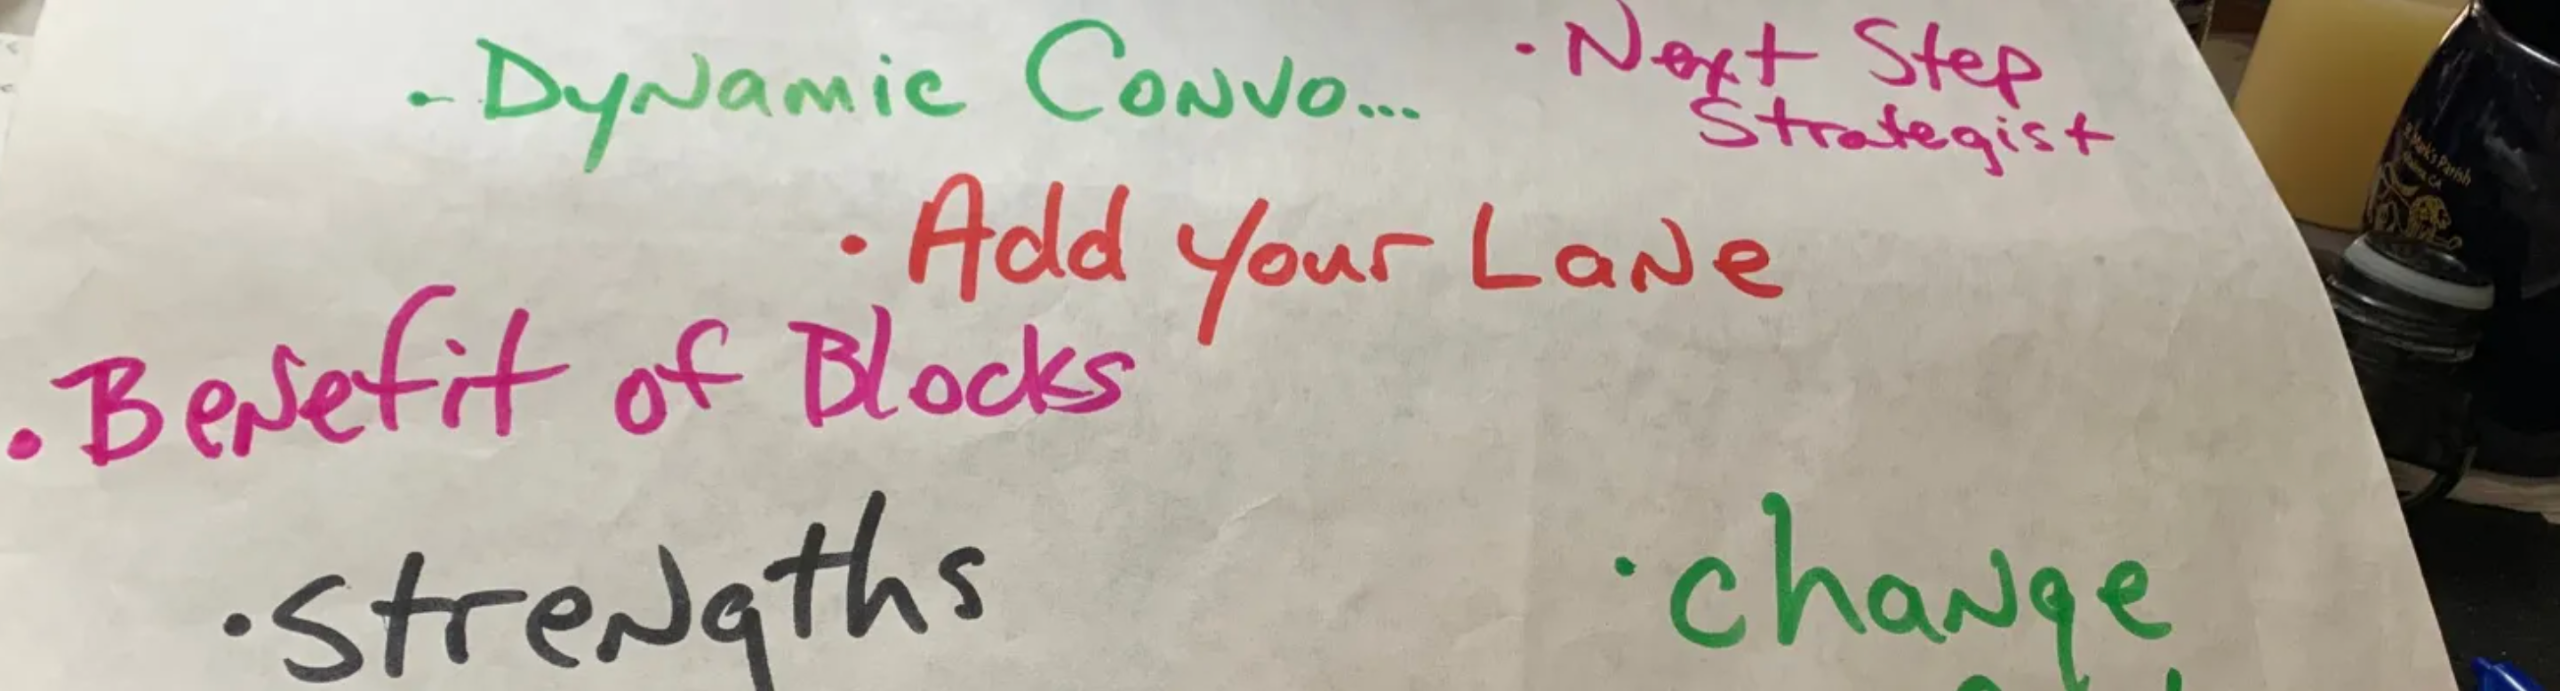 - Dynamic Convo...
· Next Step
Strategist
· Add your Lane
· Benefit of Blocks
· Strengths
· change
Mark's Parish
CA